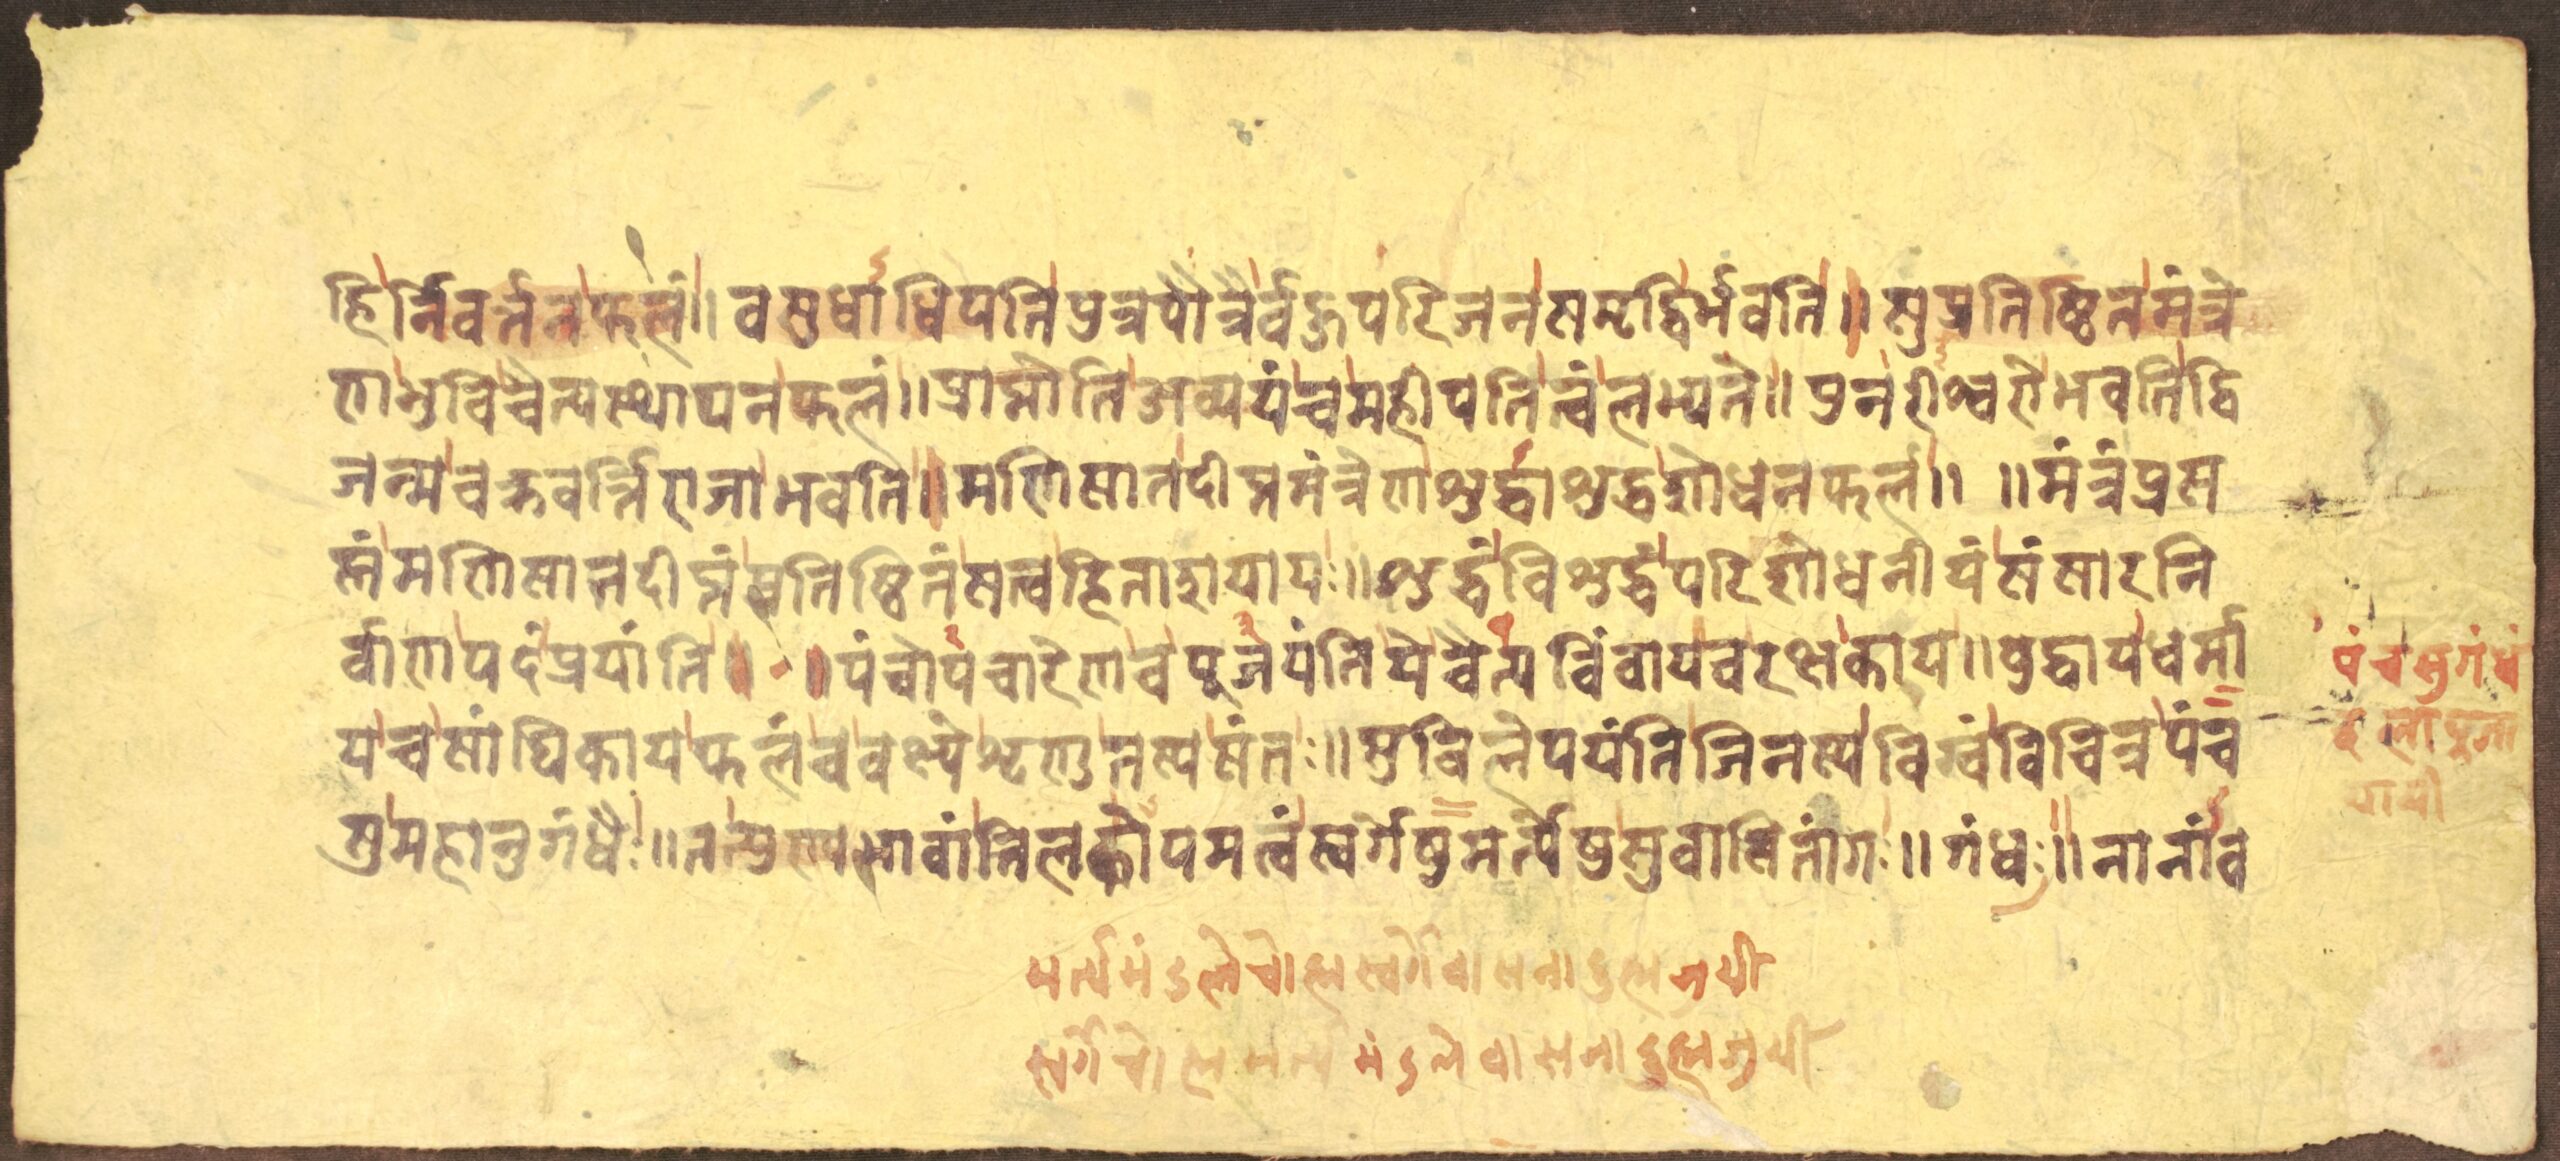 हिर्निवर्त्तनफलं॥ वसुधाधिपतिपुत्रपौत्रैर्वहुपरिजनसमृद्धिर्भवति॥ सुप्रतिष्ठितमंत्रे
णभुविचैत्यस्थापनफलं॥ प्राप्नोतिअव्ययंचमहीपतित्वंलभ्यते॥ पुनरीश्वरोभवतिद्वि
जन्मचक्रवर्त्तिराजाभवति॥ मणिसातदीप्तमंत्रेणशुद्धाशुद्धशोधनफलं॥ ॥मंत्रंप्रस
न्नंमणिसातदीप्तंप्रतिष्ठितंसत्वहिताशयायः॥ शुद्धंविशुद्धंपरिशोधनीयंसंसारनि
र्वाणपदंप्रयांति॥ ॥पंचोपचारेणचपूजयंतियेचैत्यविंवायवरक्षकाय॥ बुद्धायधर्मा
यचसांघिकायफलंचवक्ष्येशृणुतस्यसंतः॥ भुविलेपयंतिजिनस्यविम्वंविचित्रपंच
सुमहानुगंधैः॥ तत्पुण्यभावांत्तिलकोपमत्वंस्वर्गेषुमर्त्येषुसुवासितांगः॥ गंधः॥ नानाव
पंचसुगंधं
पूजा
यायी
मर्त्यमंडलेचोह्मस्वर्गेवासना
स्वर्गेचोह्ममर्त्यमंडलेवासना